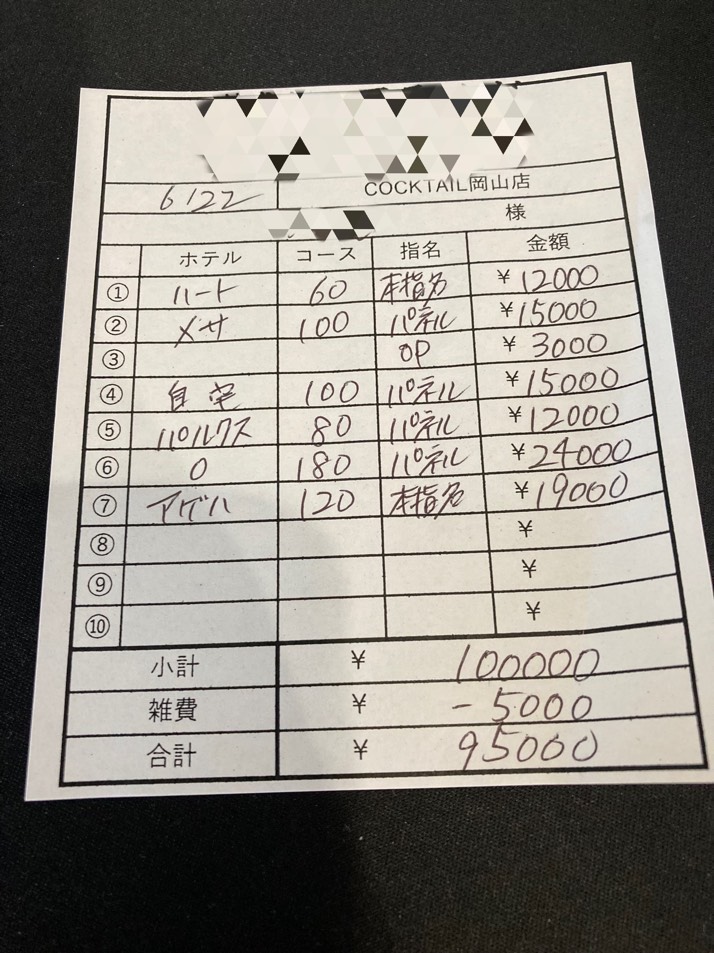 6/22 COCKTAIL岡山店
様
ホテル コース 指名 金額
① ハート 60 本指名 ¥12000
② メサ 100 パネル ¥15000
③ OP ¥3000
④ 自宅 100 パネル ¥15000
⑤ パルクス 80 パネル ¥12000
⑥ O 180 パネル ¥24000
⑦ アゲハ 120 本指名 ¥19000
⑧ ¥
⑨ ¥
⑩ ¥
小計 ¥ 100000
雑費 ¥ -5000
合計 ¥ 95000